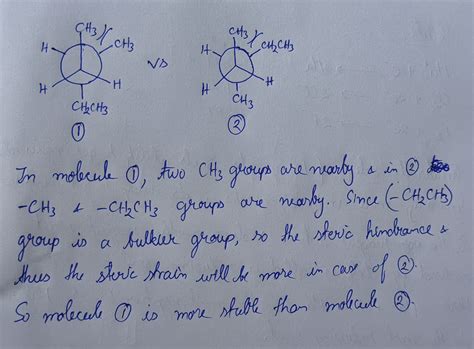 CH3 CH3
H CH3 H CH2CH3
vs
H H H H
CH2CH3 CH3
① ②
In molecule ①, two CH3 groups are nearby & in ②
-CH3 & -CH2CH3 groups are nearby. Since (-CH2CH3)
group is a bulkier group, so the steric hindrance &
thus the steric strain will be more in case of ②.
So molecule ① is more stable than molecule ②.